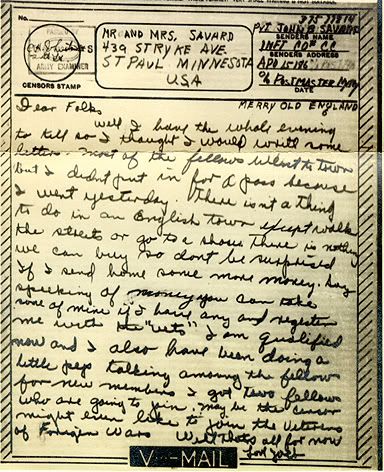 No.
PASSED
ARMY EXAMINER
CENSORS STAMP
MR AND MRS. SAVARD
439 STRYKE AVE.
ST PAUL MINNESOTA
USA
PVT JOHN B SAVARD
SENDERS NAME
INFT CO "C"
SENDERS ADDRESS
APO 15186
C/O POSTMASTER N.Y.
DATE
MERRY OLD ENGLAND
Dear Folks,
Well I have the whole evening
to kill so I thought I would write some
letters. Most of the fellows went to town
but I didnt put in for a pass because
I went yesterday. There isnt a thing
to do in an English town except walk
the streets or go to a show. There is nothing
we can buy so dont be surprised
if I send home some more money. Say
speaking of money you can take
some of mine if I have any and register
me with the "vets" I am qualified
now and I also have been doing a
little pep talking among the fellows
for new members I got two fellows
who are going to join. May be the censor
might even like to join the Veterans
of Foreign Wars Well thats all for now
V-MAIL